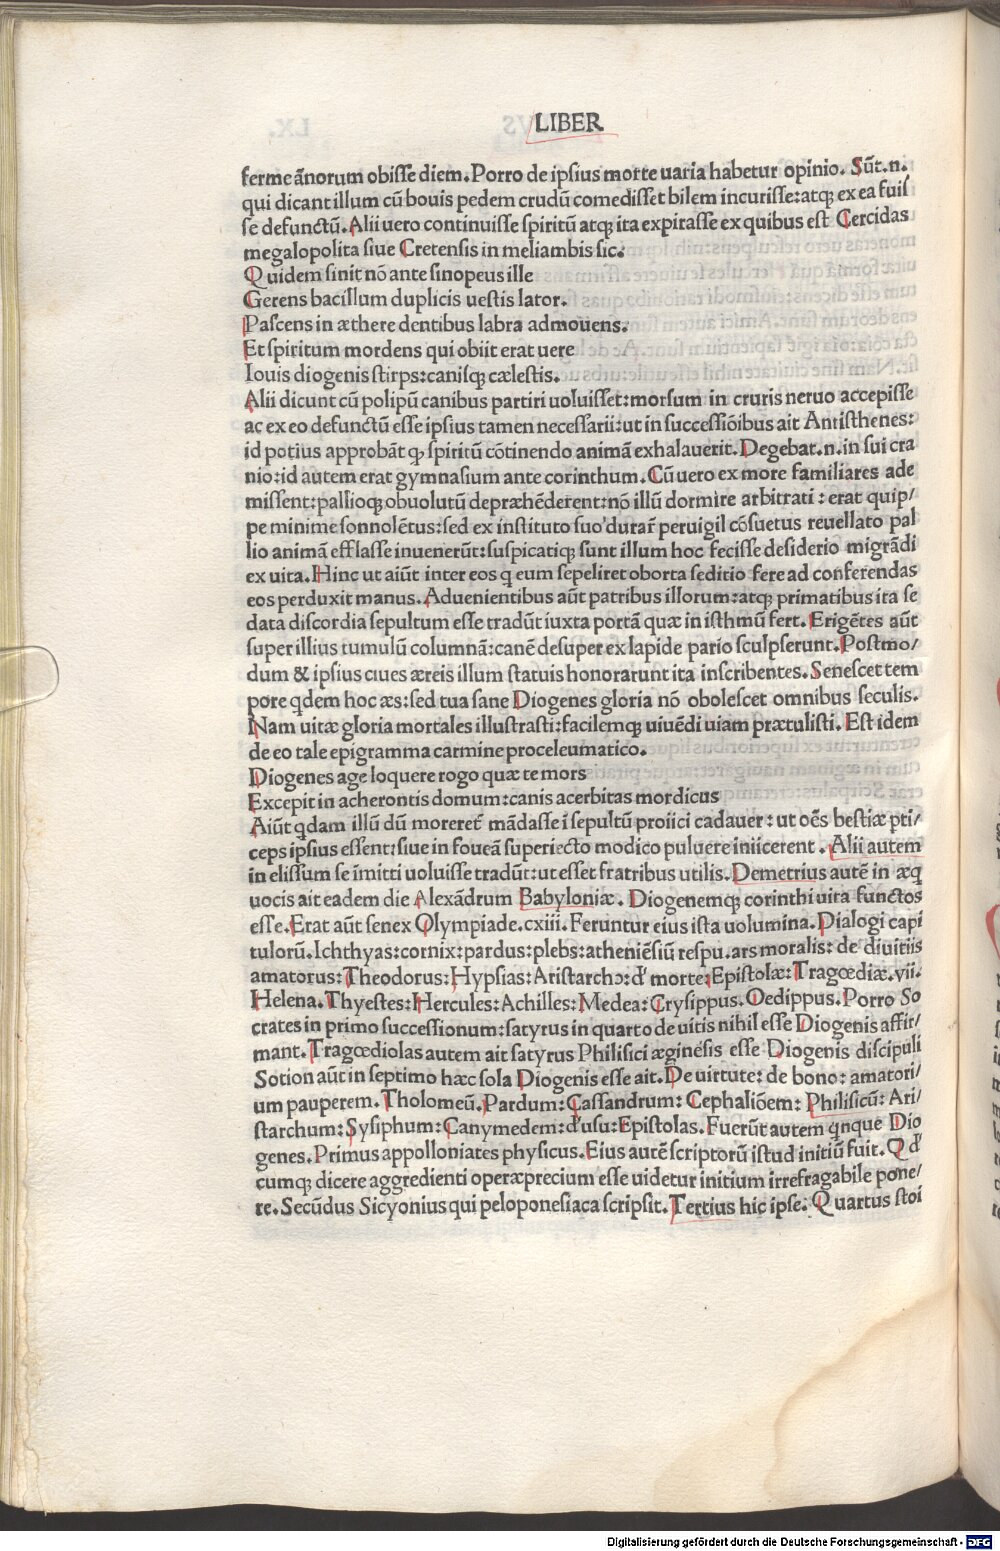 LIBER
ferme ãnorum obisse diem. Porro de ipsius morte uaria habetur opinio. Sũt.n.
qui dicant illum cũ bouis pedem crudũ comedisset bilem incurisse: atq; ex ea fuis
se defunctũ. Alii uero continuisse spiritũ atq; ita expirasse ex quibus est Cercidas
megalopolita siue Cretensis in meliambis sic.
Quidem sinit nõ ante sinopeus ille
Gerens bacillum duplicis uestis lator.
Pascens in æthere dentibus labra admouens.
Et spiritum mordens qui obiit erat uere
Iouis diogenis stirps: canisq; cælestis.
Alii dicunt cũ polipũ canibus partiri uoluisset: morsum in cruris neruo accepisse
ac ex eo defunctũ esse ipsius tamen necessarii: ut in successiõibus ait Antisthenes:
id potius approbãt q; spiritũ cõtinendo animã exhalauerit. Degebat.n. in sui cra
nio: id autem erat gymnasium ante corinthum. Cũ uero ex more familiares ade
missent: pallioq; obuolutũ depræhẽderent: nõ illũ dormire arbitrati: erat quip/
pe minime sonnolẽtus: sed ex instituto suo durar̃ peruigil cõsuetus reuellato pal
lio animã efflasse inuenerũt: suspicatiq; sunt illum hoc fecisse desiderio migrãdi
ex uita. Hinc ut aiũt inter eos q eum sepeliret oborta seditio fere ad conferendas
eos perduxit manus. Aduenientibus aũt patribus illorum: atq; primatibus ita se
data discordia sepultum esse tradũt iuxta portã quæ in isthmũ fert. Erigẽtes aũt
super illius tumulũ columnã: canẽ desuper ex lapide pario sculpserunt. Postmo/
dum & ipsius ciues æreis illum statuis honorarunt ita inscribentes. Senescet tem
pore qdem hoc æs: sed tua sane Diogenes gloria nõ obolescet omnibus seculis.
Nam uitæ gloria mortales illustrasti: facilemq; uiuẽdi uiam prætulisti. Est idem
de eo tale epigramma carmine proceleumatico.
Diogenes age loquere rogo quæ te mors
Excepit in acherontis domum: canis acerbitas mordicus
Aiũt qdam illũ dũ moreret̃ mãdasse ĩ sepultũ proiici cadauer: ut oẽs bestiæ pti/
ceps ipsius essent: siue in foueã superiecto modico puluere iniicerent. Alii autem
in elissum se ĩmitti uoluisse tradũt: ut esset fratribus utilis. Demetrius autẽ in æq
uocis ait eadem die Alexãdrum Babyloniæ. Diogenemq; corinthi uita functos
esse. Erat aũt senex Olympiade.cxiii. Feruntur eius ista uolumina. Dialogi capi
tulorũ. Ichthyas: cornix: pardus: plebs: atheniẽsiũ respu. ars moralis: de diuitiis
amatorus: Theodorus: Hypsias: Aristarchɔ: d' morte: Epistolæ: Tragœdiæ.vii.
Helena. Thyestes: Hercules: Achilles: Medea: Crysippus. Oedippus. Porro So
crates in primo successionum: satyrus in quarto de uitis nihil esse Diogenis affir/
mant. Tragœdiolas autem ait satyrus Philisici æginẽsis esse Diogenis discipuli
Sotion aũt in septimo hæc sola Diogenis esse ait. De uirtute: de bono: amatori/
um pauperem. Tholomeũ. Pardum: Cassandrum: Cephaliõem: Philisicũ: Ari/
starchum: Sysiphum: Canymedem: d' usu: Epistolas. Fuerũt autem qnque Dio
genes. Primus appolloniates physicus. Eius autẽ scriptorũ istud initiũ fuit. Q d'
cumq; dicere aggredienti operæprecium esse uidetur initium irrefragabile pone/
re. Secũdus Sicyonius qui peloponesiaca scripsit. Tertius hic ipse. Quartus stoi
Digitalisierung gefördert durch die Deutsche Forschungsgemeinschaft - DFG